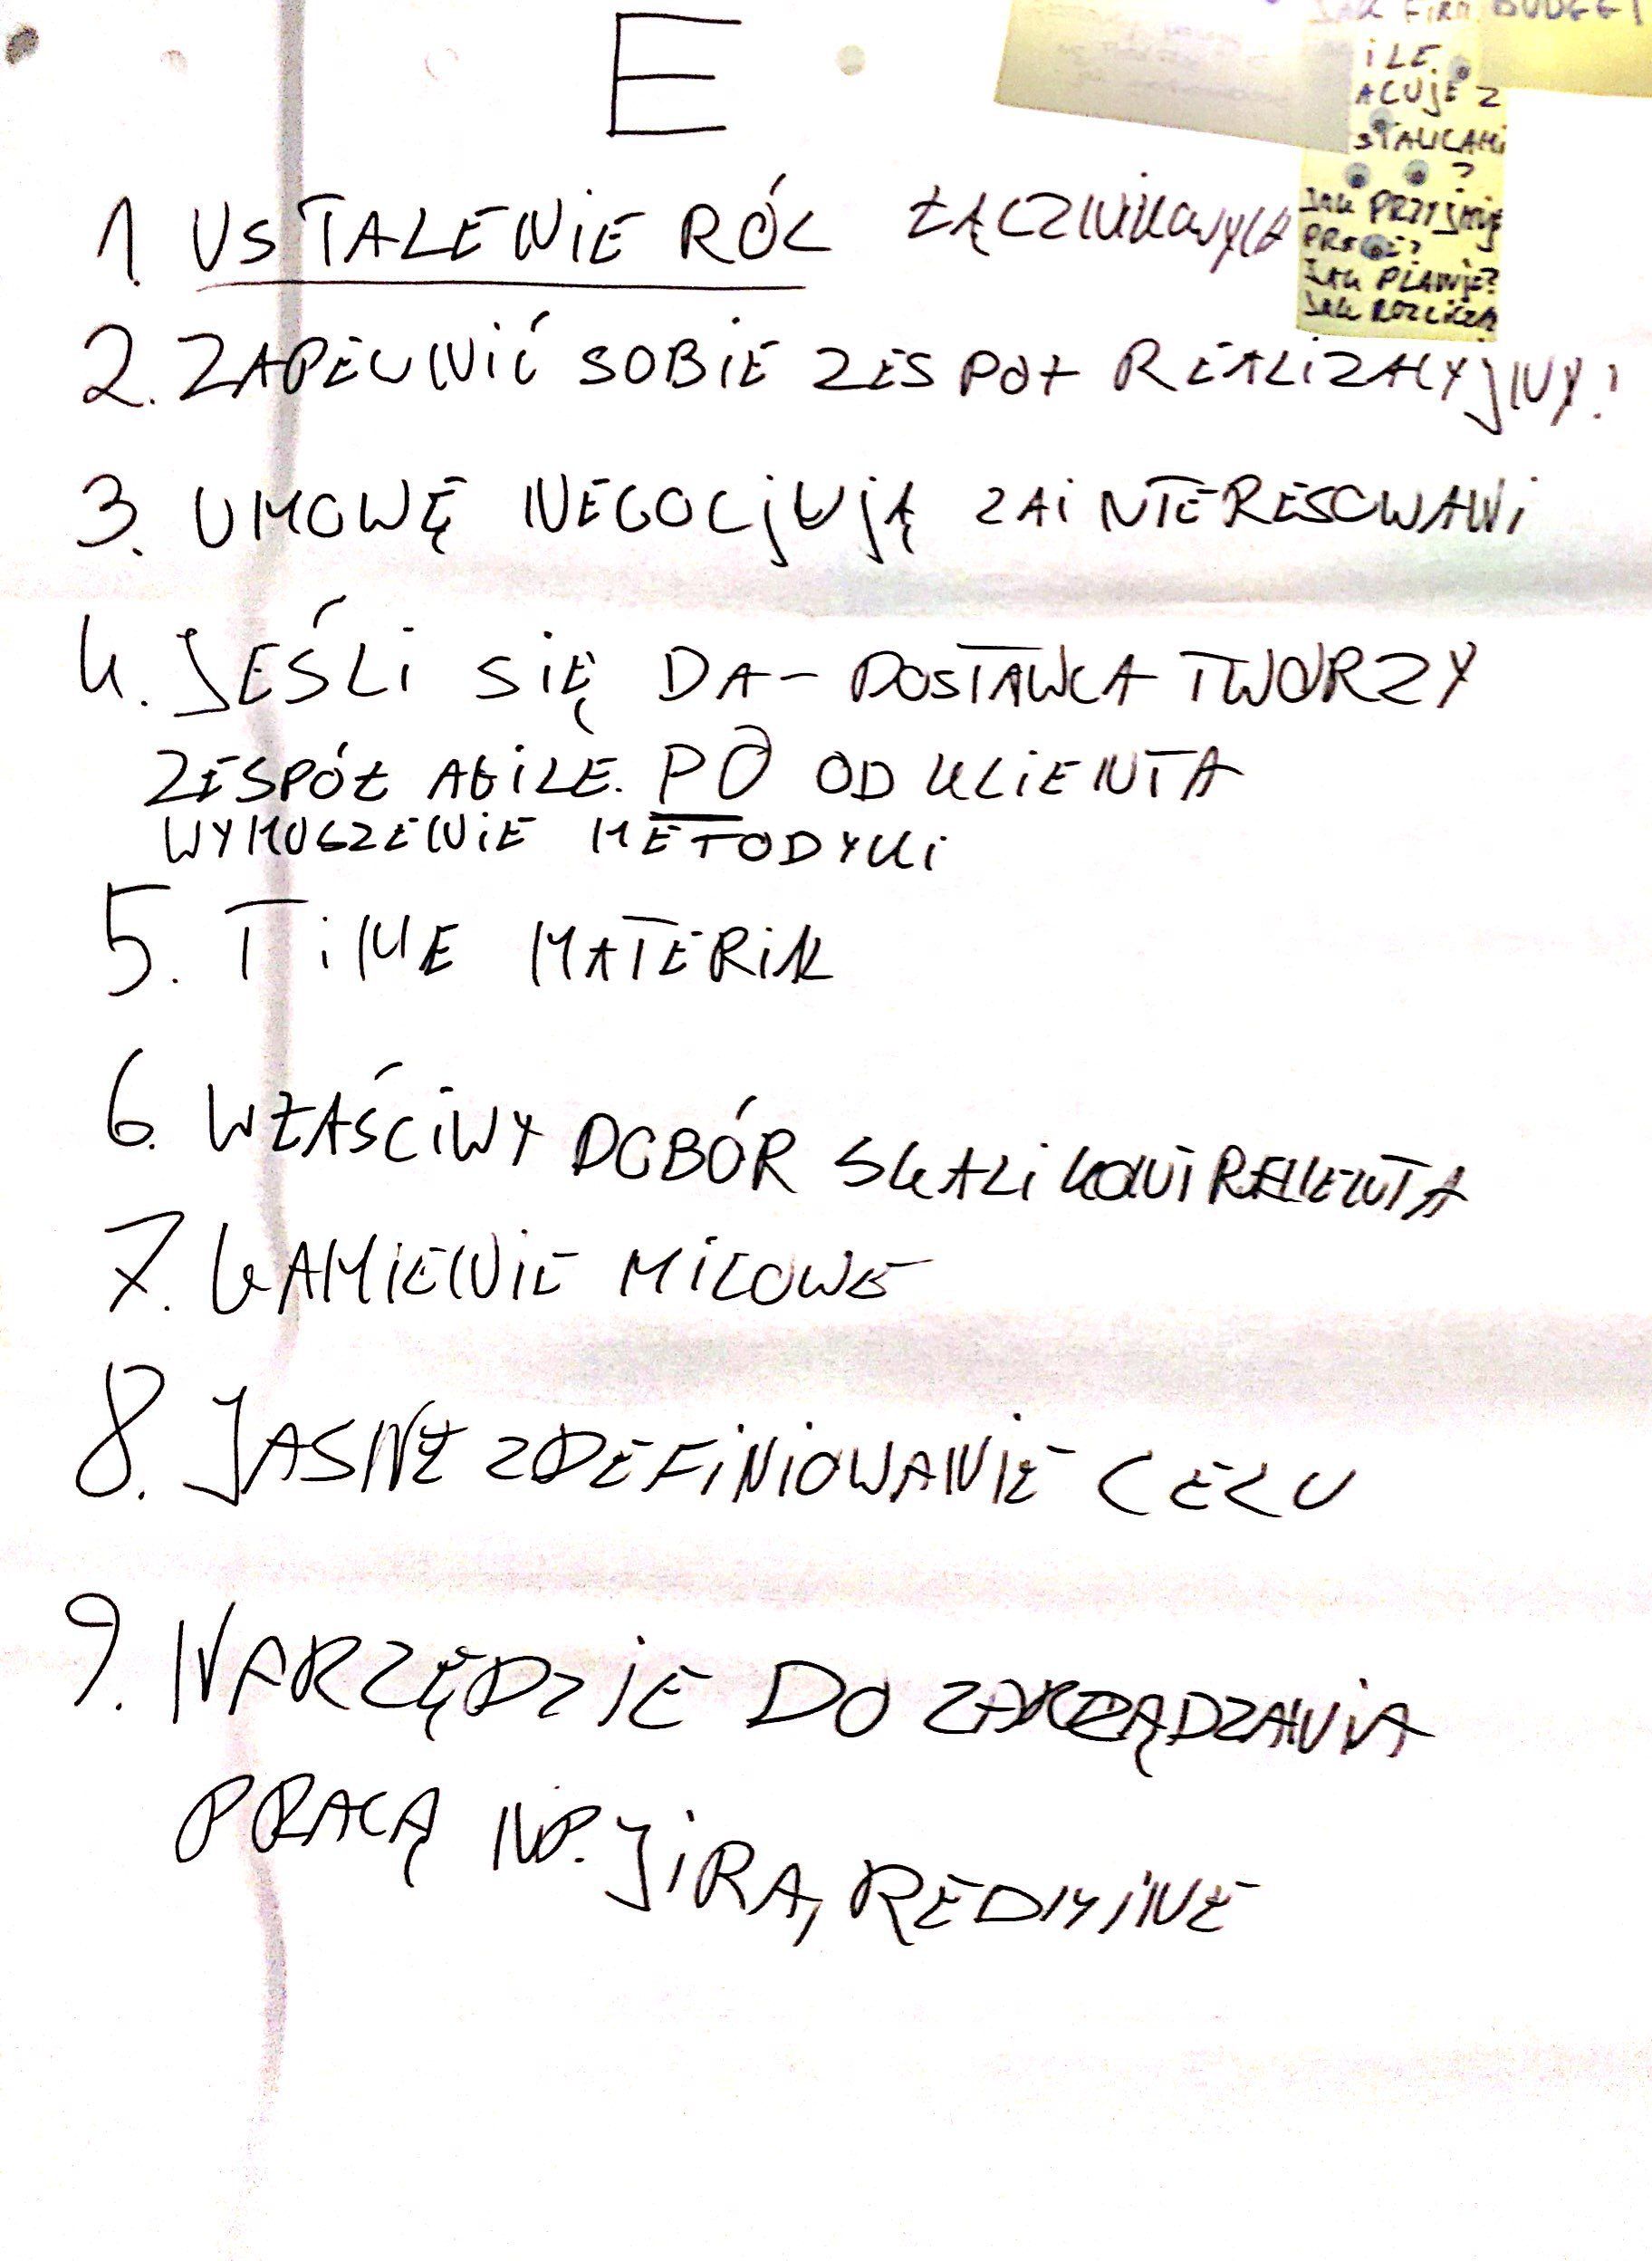 E
BUDGET
ILE
ACUJE Z
STAWCAMI
?
JAK PRZYJMUJE
PRACĘ?
JAK PLANUJE?
JAK ROZLICZA
1. USTALENIE RÓL ŁĄCZNIKOWYCH
2. ZAPEWNIĆ SOBIE ZESPÓŁ REALIZACYJNY!
3. UMOWĘ NEGOCJUJĄ ZAINTERESOWANI
4. JEŚLI SIĘ DA - DOSTAWCA TWORZY
ZESPÓŁ AGILE. PO OD KLIENTA
WYMUSZENIE METODYKI
5. TIME MATERIAL
6. WŁAŚCIWY DOBÓR SKALI KONTRAHENTA
7. KAMIENIE MILOWE
8. JASNE ZDEFINIOWANIE CELU
9. NARZĘDZIE DO ZARZĄDZANIA
PRACĄ NP. JIRA, REDMINE